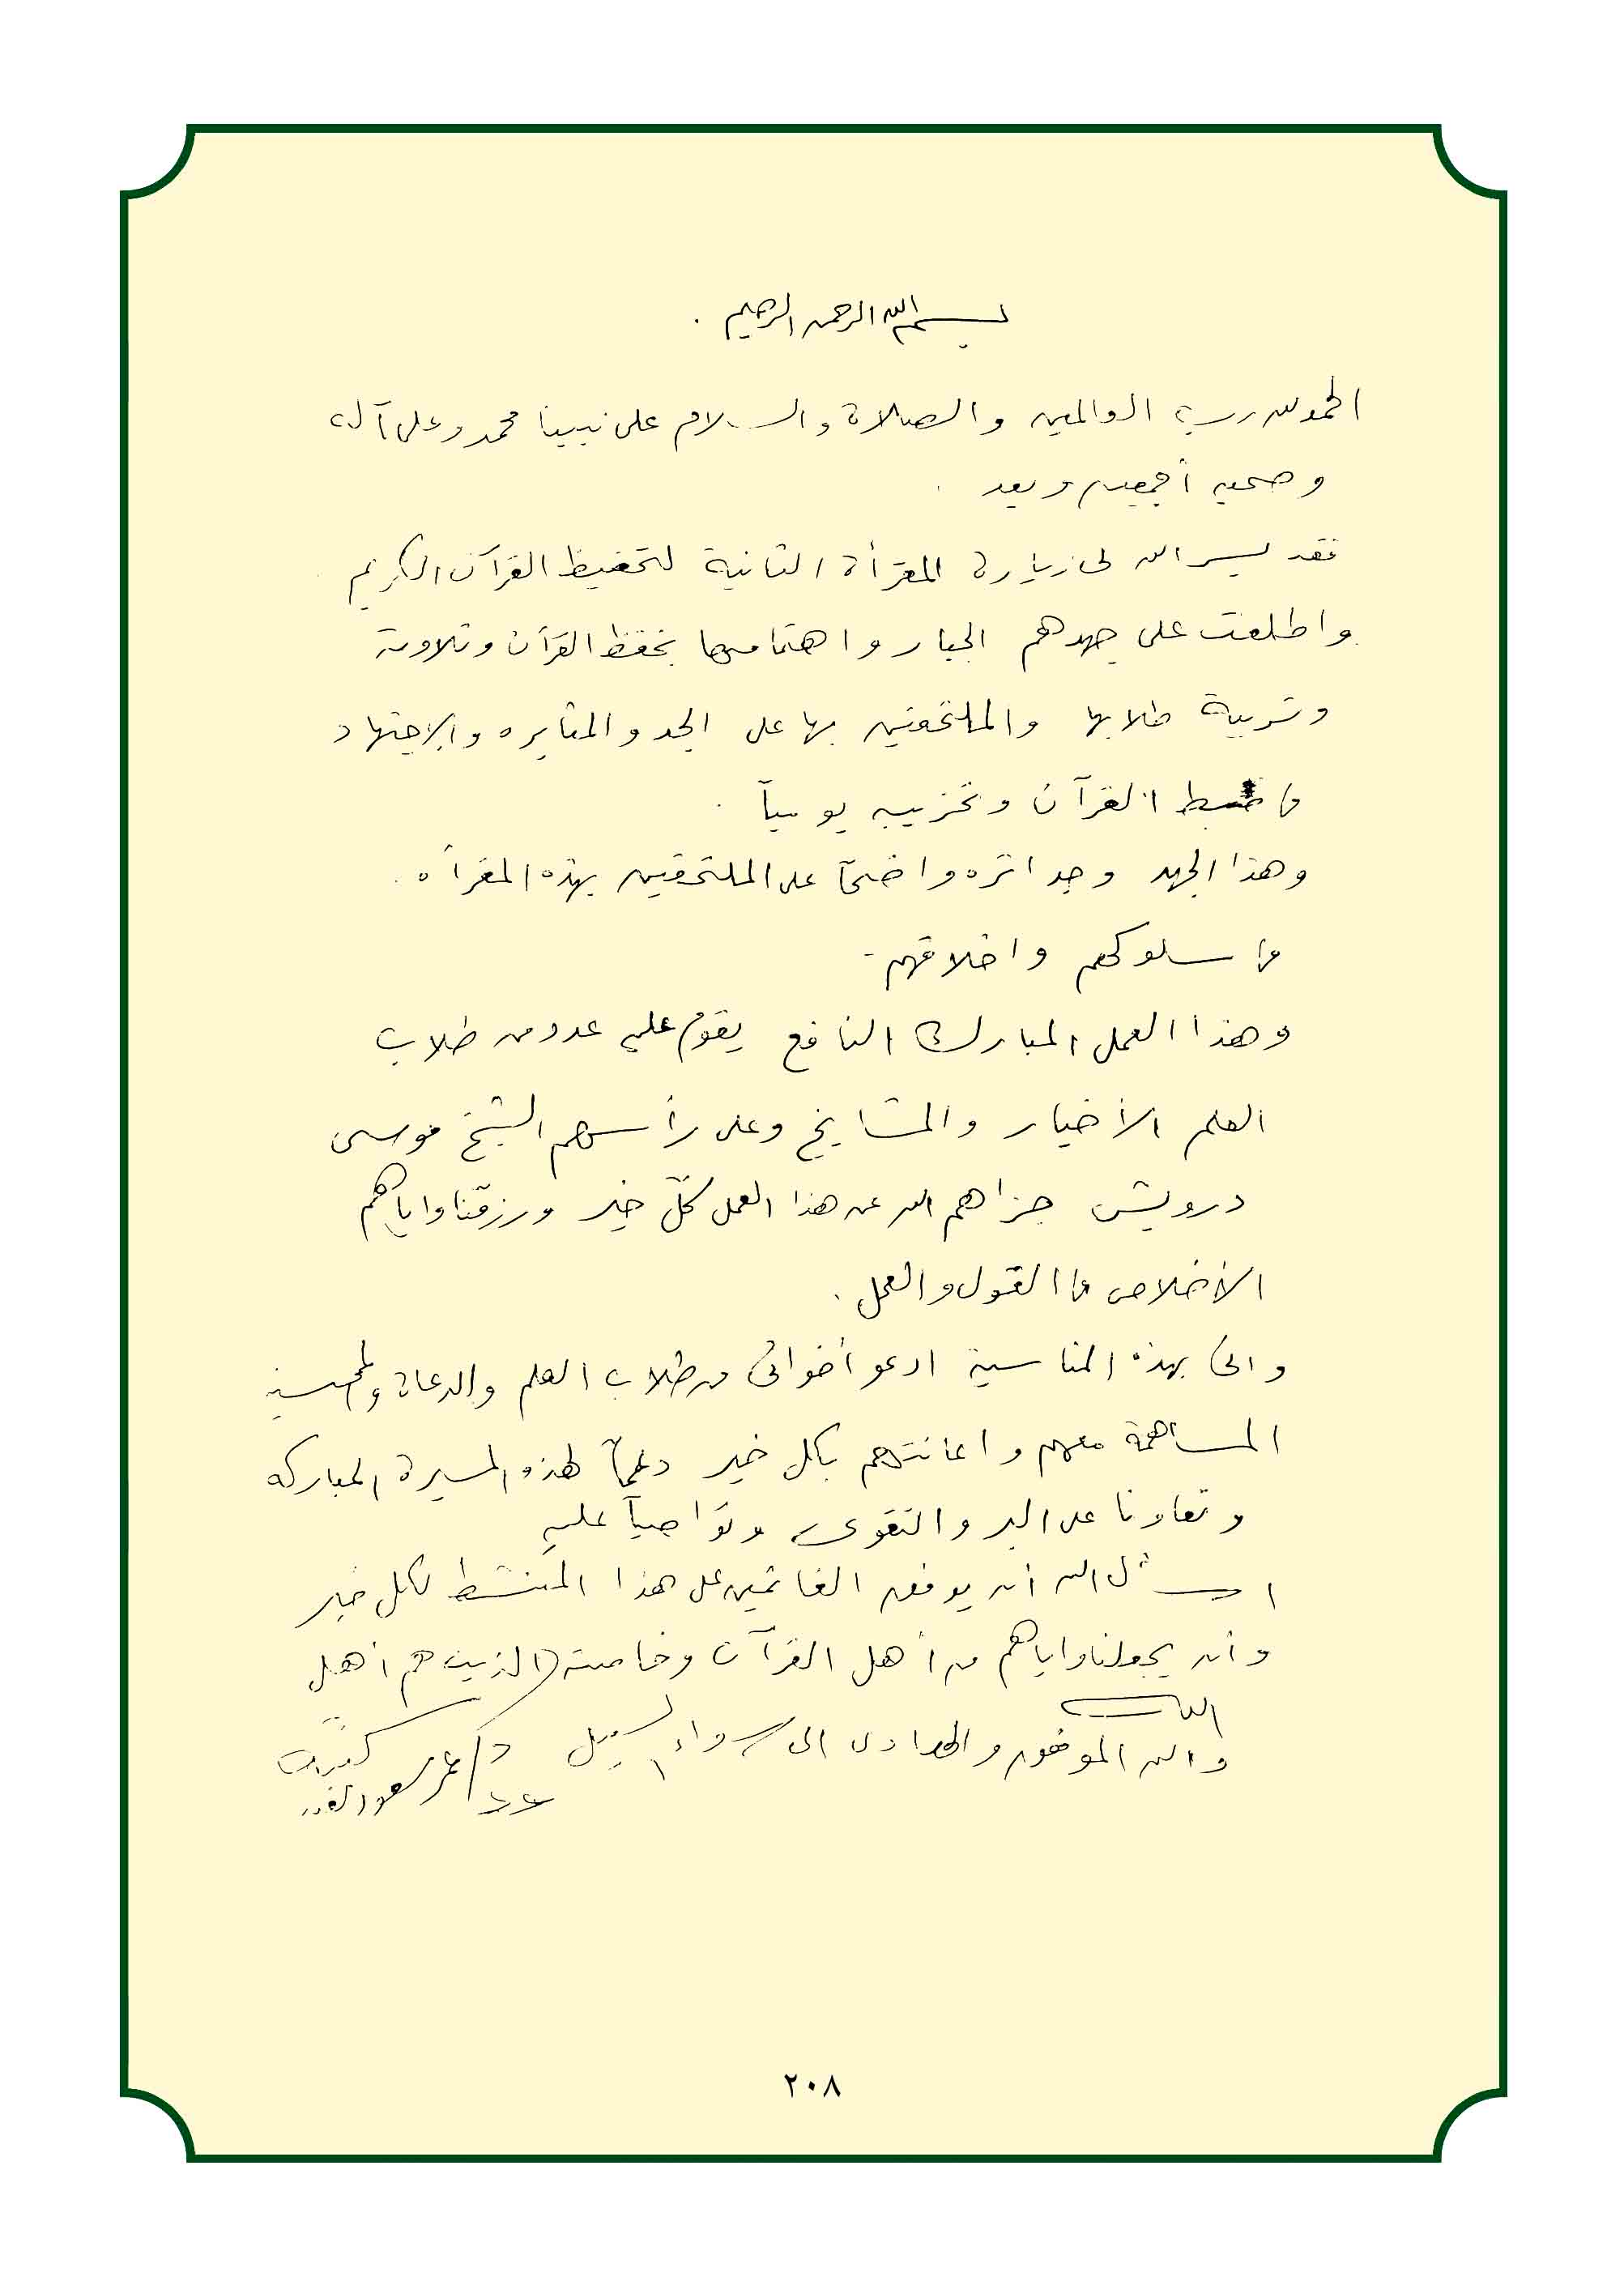 بسم الله الرحمن الرحيم .
الحمد لله رب العالمين والصلاة والسلام على نبينا محمد وعلى آله
وصحبه أجمعين وبعد .
فقد يسر الله لى زيارة المقرأة الثانية لتحفيظ القرآن الكريم
واطلعت على جهدهم الجبار واهتمامها بحفظ القرآن وتلاوته
وتربية طلابها والملتحقين بها على الجد والمثابره والاجتهاد
فى ضبط القرآن وتحزيبه يومياً .
وهذا الجهد وجد اثره واضحاً على الملتحقين بهذه المقرأه .
فى سلوكهم واخلاقهم -
وهذا العمل المبارك النافع يقوم عليه عدد من طلاب
العلم الأخيار والمشايخ وعلى رأسهم الشيخ موسى
درويش جزاهم الله عن هذا العمل كلّ خير ورزقنا واياهم
الأخلاص فى القول والعمل .
وانى بهذه المناسبة ادعو أخوانى من طلاب العلم والدعاة والمحسنين
المساهمة معهم واعانتهم بكل خير دعماً لهذه المسيرة المباركه
وتعاونا على البر والتقوى وتواصياً عليه
اسئل الله أن يوفق القائمين على هذا المنشط لكل خير
وأن يجعلنا واياهم من أهل القرآن وخاصته الذين هم أهل
الله
والله الموفق والهادى الى سواء السبيل كتبه
د/ عمر سعود
٢٠٨